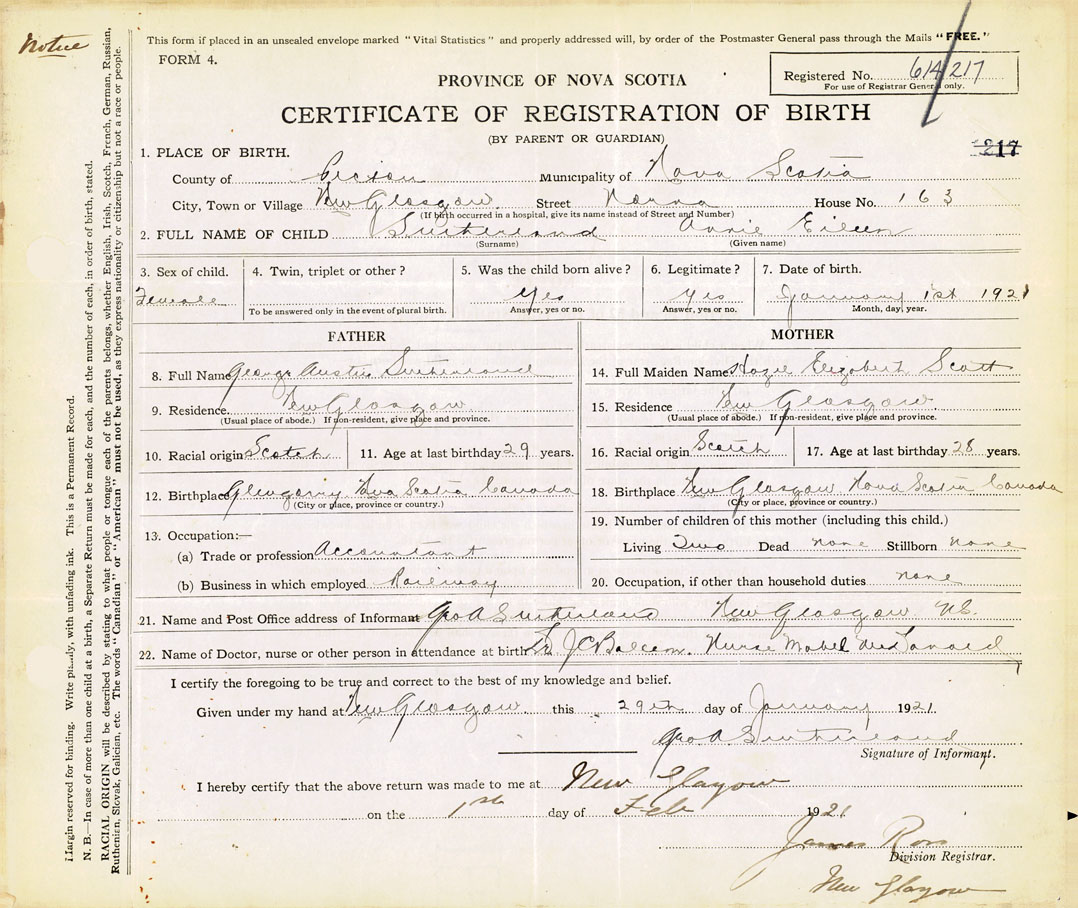 Notice
This form if placed in an unsealed envelope marked "Vital Statistics" and properly addressed will, by order of the Postmaster General pass through the Mails "FREE."
FORM 4.
Registered No. 614/217
For use of Registrar General only.
PROVINCE OF NOVA SCOTIA
CERTIFICATE OF REGISTRATION OF BIRTH
(BY PARENT OR GUARDIAN)
217
1. PLACE OF BIRTH.
County of Pictou Municipality of Nova Scotia
City, Town or Village New Glasgow Street House No. 163
(If birth occurred in a hospital, give its name instead of Street and Number)
2. FULL NAME OF CHILD Sutherland Annie Eileen
(Surname) (Given name)
3. Sex of child. 4. Twin, triplet or other? 5. Was the child born alive? 6. Legitimate? 7. Date of birth.
Female Yes Yes January 1st 1921
To be answered only in the event of plural birth. Answer, yes or no. Answer, yes or no. Month, day, year.
FATHER MOTHER
8. Full Name George Austin Sutherland 14. Full Maiden Name Hazel Elizabeth Scott
9. Residence New Glasgow 15. Residence New Glasgow
(Usual place of abode.) If non-resident, give place and province. (Usual place of abode.) If non-resident, give place and province.
10. Racial origin Scotch 11. Age at last birthday 29 years. 16. Racial origin Scotch 17. Age at last birthday 28 years.
12. Birthplace Glengarry Nova Scotia Canada 18. Birthplace New Glasgow Nova Scotia Canada
(City or place, province or country.) (City or place, province or country.)
19. Number of children of this mother (including this child.)
13. Occupation:—
(a) Trade or profession Accountant Living Two Dead none Stillborn none
(b) Business in which employed Railway 20. Occupation, if other than household duties none
21. Name and Post Office address of Informant Geo A Sutherland New Glasgow N.S.
22. Name of Doctor, nurse or other person in attendance at birth Dr J C Ballem. Nurse Mabel MacDonald
I certify the foregoing to be true and correct to the best of my knowledge and belief.
Given under my hand at New Glasgow this 29th day of January 1921.
Geo A. Sutherland
Signature of Informant.
I hereby certify that the above return was made to me at New Glasgow
on the 1st day of Feb 1921
James Ross
Division Registrar.
New Glasgow
Margin reserved for binding. Write plainly, with unfading ink. This is a Permanent Record.
N. B.—In case of more than one child at a birth, a Separate Return must be made for each, and the number of each, in order of birth, stated.
RACIAL ORIGIN will be described by stating to what people or tongue each of the parents belongs, whether English, Irish, Scotch, French, German, Russian,
Ruthenian, Slovak, Galician, etc. The words "Canadian" or "American" must not be used, as they express nationality or citizenship but not a race or people.